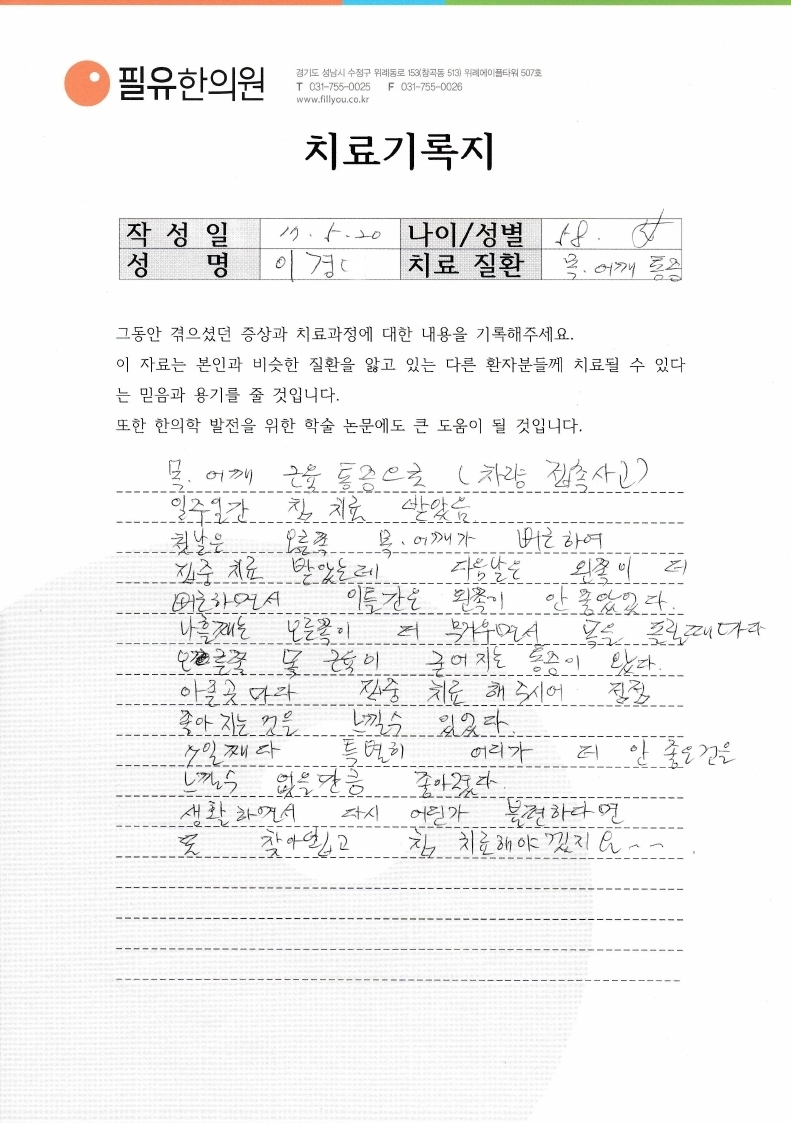 필유한의원
경기도 성남시 수정구 위례동로 153(창곡동 513) 위례에이플타워 507호
T 031-755-0025 F 031-755-0026
www.fillyou.co.kr
치료기록지
작 성 일 17. 5. 20 나이/성별 58.
성 명 이 경 치료 질환 목. 어깨 통증
그동안 겪으셨던 증상과 치료과정에 대한 내용을 기록해주세요.
이 자료는 본인과 비슷한 질환을 앓고 있는 다른 환자분들께 치료될 수 있다
는 믿음과 용기를 줄 것입니다.
또한 한의학 발전을 위한 학술 논문에도 큰 도움이 될 것입니다.
목. 어깨 근육 통증으로 (차량 접촉사고)
일주일간 침 치료 받았음
첫날은 오른쪽 목. 어깨가 뻐근하여
집중 치료 받았는데 다음날은 왼쪽이 더
뻐근하면서 이틀간은 왼쪽이 안 좋았었다.
나흘째는 오른쪽이 더 무거우면서 목을 돌릴때마다
오른쪽 목 근육이 굳어지는 통증이 왔다.
아픈곳 마다 집중 치료 해 주시어 점점
좋아 지는 것을 느낄수 있었다.
7일째다 특별히 어디가 더 안 좋은건을
느낄수 없을만큼 좋아졌다
생활하면서 다시 어딘가 불편하다면
또 찾아뵙고 침 치료해야겠지요~~.